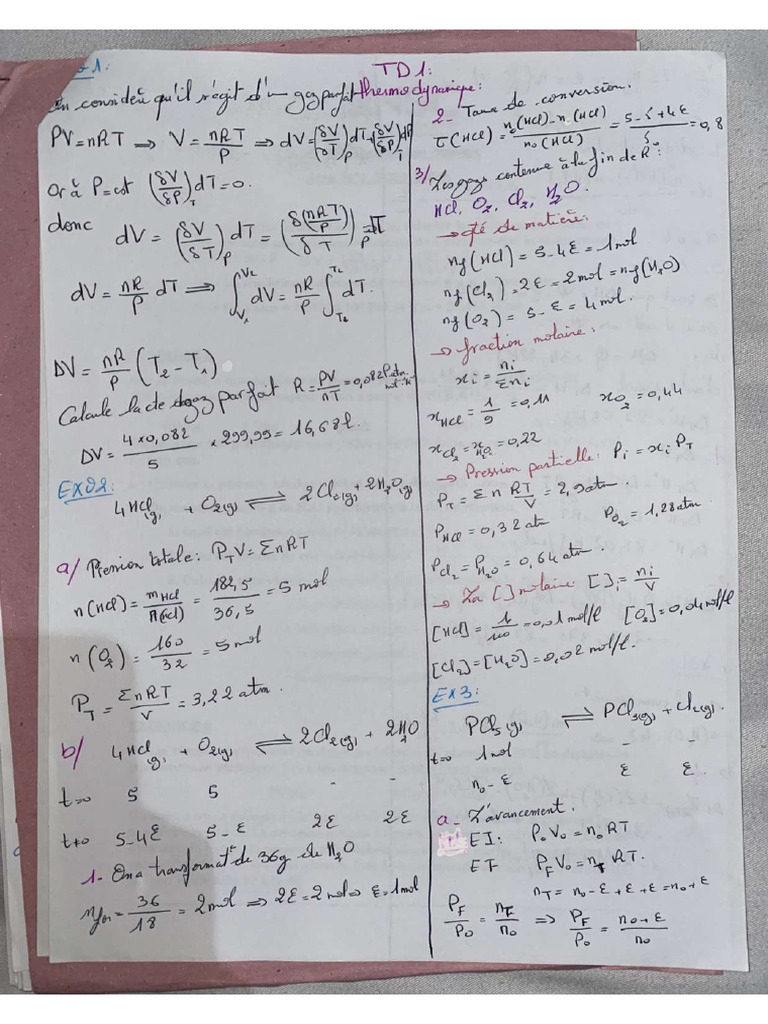 TD1:
thermodynamique:
On considère qu'il s'agit d'un gaz parfait
PV=nRT ⟹ V = nRT/P ⟹ dV = (δV/δT)_P dT + (δV/δP)_T dP
Or à P=cst (δV/δP)_T dT=0.
donc dV = (δV/δT)_P dT = (δ(nRT/P)/δT)_P dT
dV = nR/P dT ⟹ ∫_{V1}^{V2} dV = nR/P ∫_{T2}^{T2} dT.
ΔV = nR/P (T2 - T1)
Calcule la cte gaz parfait R = PV/nT = 0,082
ΔV = 4×0,082/5 × 299,99 = 16,68 l.
EX02:
4HCl(g) + O2(g) ⇌ 2Cl2(g) + 2H2O(g)
a/ Pression totale: P_T V = ΣnRT
n(HCl) = mHCl/M(HCl) = 182,5/36,5 = 5 mol
n(O2) = 160/32 = 5 mol
P_T = ΣnRT/V = 3,22 atm.
b/ 4HCl(g) + O2(g) ⇌ 2Cl2(g) + 2H2O
t=0 5 5 - -
t≠0 5-4ε 5-ε 2ε 2ε
1- On a transformat° de 36g de H2O
= 36/18 = 2mol ⟹ 2ε=2mol ⟹ ε=1mol
2- Taux de conversion.
τ(HCl) = n0(HCl)-n(HCl)/n0(HCl) = 5-5+4ε/5 = 0,8
3/ Les gaz contenue à la fin de R°:
HCl, O2, Cl2, H2O.
→ Qté de matière:
nf(HCl) = 5-4ε = 1mol
nf(Cl2) = 2ε = 2mol = nf(H2O)
nf(O2) = 5-ε = 4mol.
→ fraction molaire:
xi = ni/Σni
xHCl = 1/9 = 0,11 xO2 = 0,44
xCl2 = xH2O = 0,22
→ Pression partielle: Pi = xi PT
PT = Σn RT/V = 2,9 atm.
PHCl = 0,32 atm PO2 = 1,28 atm
PCl2 = PH2O = 0,64 atm.
→ La [ ] molaire [ ]i = ni/V
[HCl] = 1/100 = 0,01 mol/l [O2] = 0,04 mol/l
[Cl2] = [H2O] = 0,02 mol/l.
EX3:
PCl5(g) ⇌ PCl3(g) + Cl2(g).
t=0 1mol - -
n0-ε ε ε.
a- L'avancement.
EI: P0V0 = n0RT
EF PFV0 = nT RT.
nT = n0-ε+ε+ε = n0+ε
PF/P0 = nT/n0 ⟹ PF/P0 = n0+ε/n0